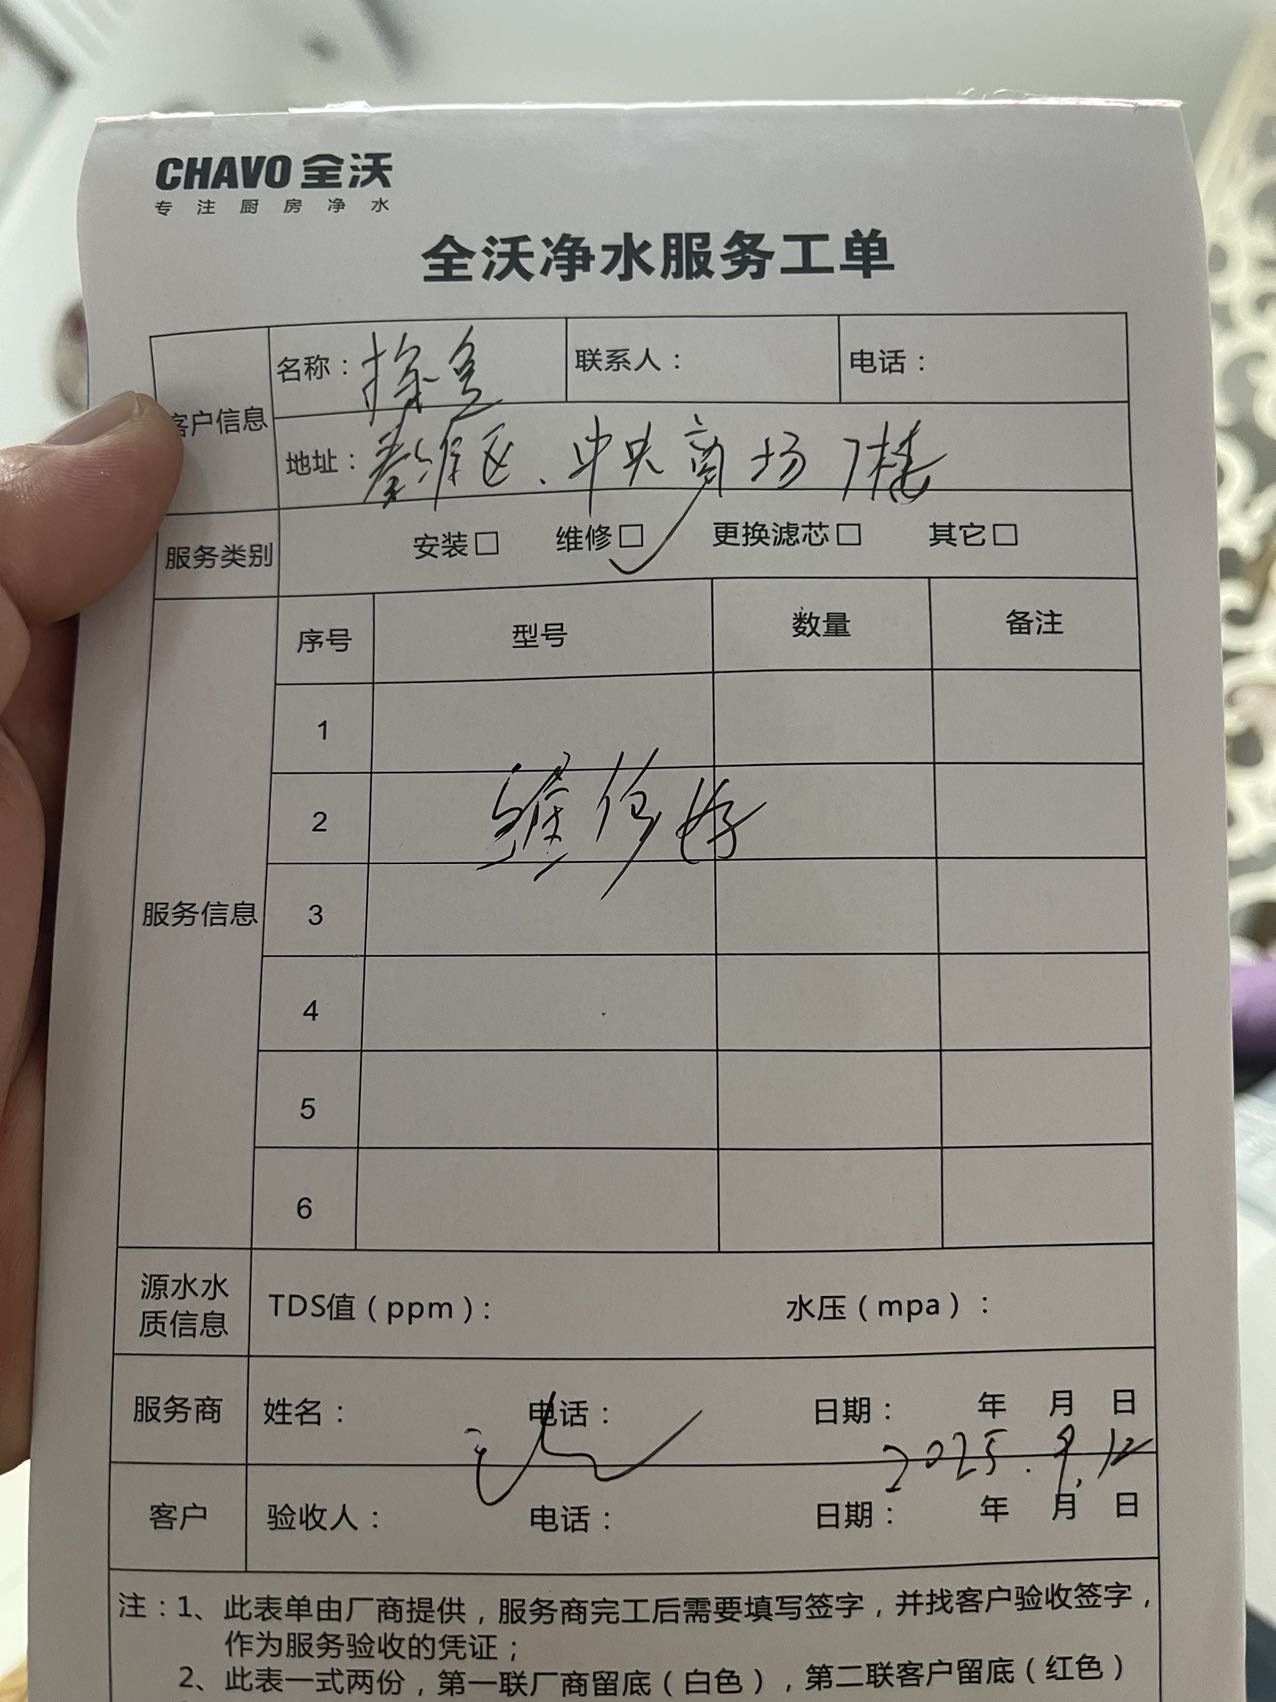 CHAVO 全沃
专注厨房净水
全沃净水服务工单
客户信息
名称：探鱼
联系人：
电话：
地址：秦淮区、中央商场7楼
服务类别
安装□ 维修□✓ 更换滤芯□ 其它□
服务信息
序号 型号 数量 备注
1
2 维修好
3
4
5
6
源水水质信息
TDS值（ppm）： 水压（mpa）：
服务商 姓名： 电话： 日期： 年 月 日
2025.9.12
客户 验收人： 电话： 日期： 年 月 日
注：1、此表单由厂商提供，服务商完工后需要填写签字，并找客户验收签字，
作为服务验收的凭证；
2、此表一式两份，第一联厂商留底（白色），第二联客户留底（红色）